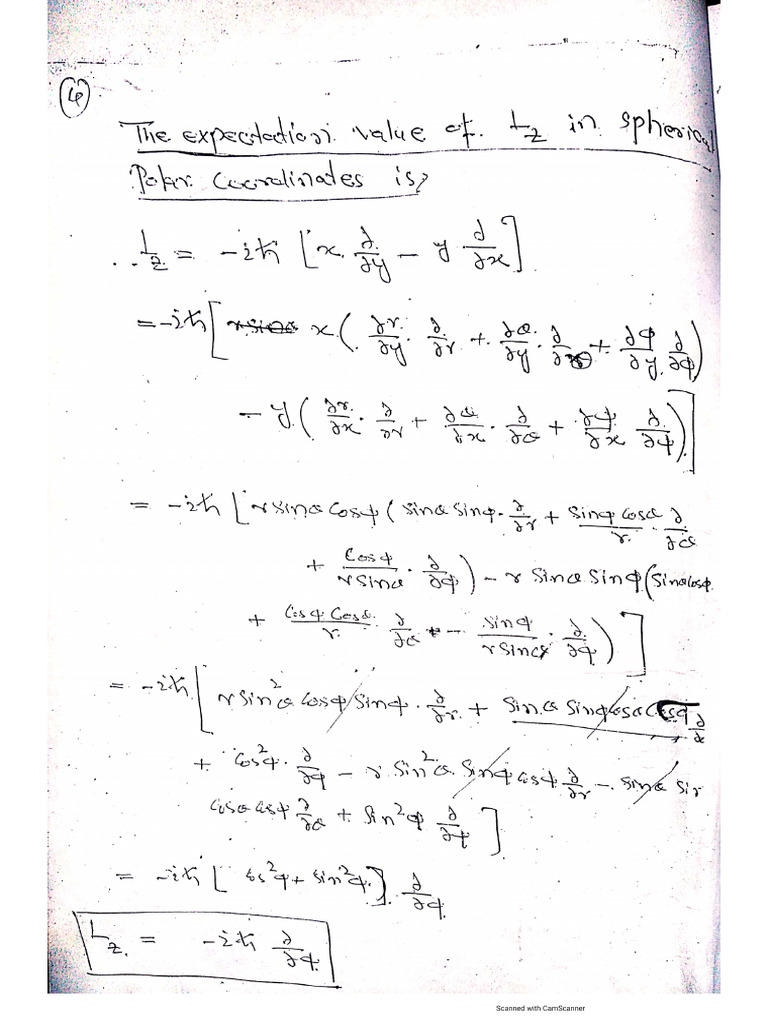 ④
The expectation value of L_z in spherical
Polar coordinates is?
L_z = -iħ [x ∂/∂y - y ∂/∂x]
= -iħ [x (∂r/∂y · ∂/∂r + ∂θ/∂y · ∂/∂θ + ∂φ/∂y ∂/∂φ)
- y (∂r/∂x · ∂/∂r + ∂θ/∂x · ∂/∂θ + ∂φ/∂x ∂/∂φ)]
= -iħ [r sinθ cosφ (sinθ sinφ · ∂/∂r + sinφ cosθ/r · ∂/∂θ
+ cosφ/r sinθ · ∂/∂φ) - r sinθ sinφ (sinθ cosφ
+ cosφ cosθ/r ∂/∂θ - sinφ/r sinθ · ∂/∂φ)]
= -iħ [r sin²θ cosφ sinφ · ∂/∂r + sinθ sinφ cosθ cosφ ∂/∂
+ cos²φ · ∂/∂φ - r sin²θ sinφ cosφ ∂/∂r - sinθ sin
cosθ cosφ ∂/∂θ + sin²φ ∂/∂φ]
= -iħ [cos²φ + sin²φ] ∂/∂φ
L_z = -iħ ∂/∂φ
Scanned with CamScanner